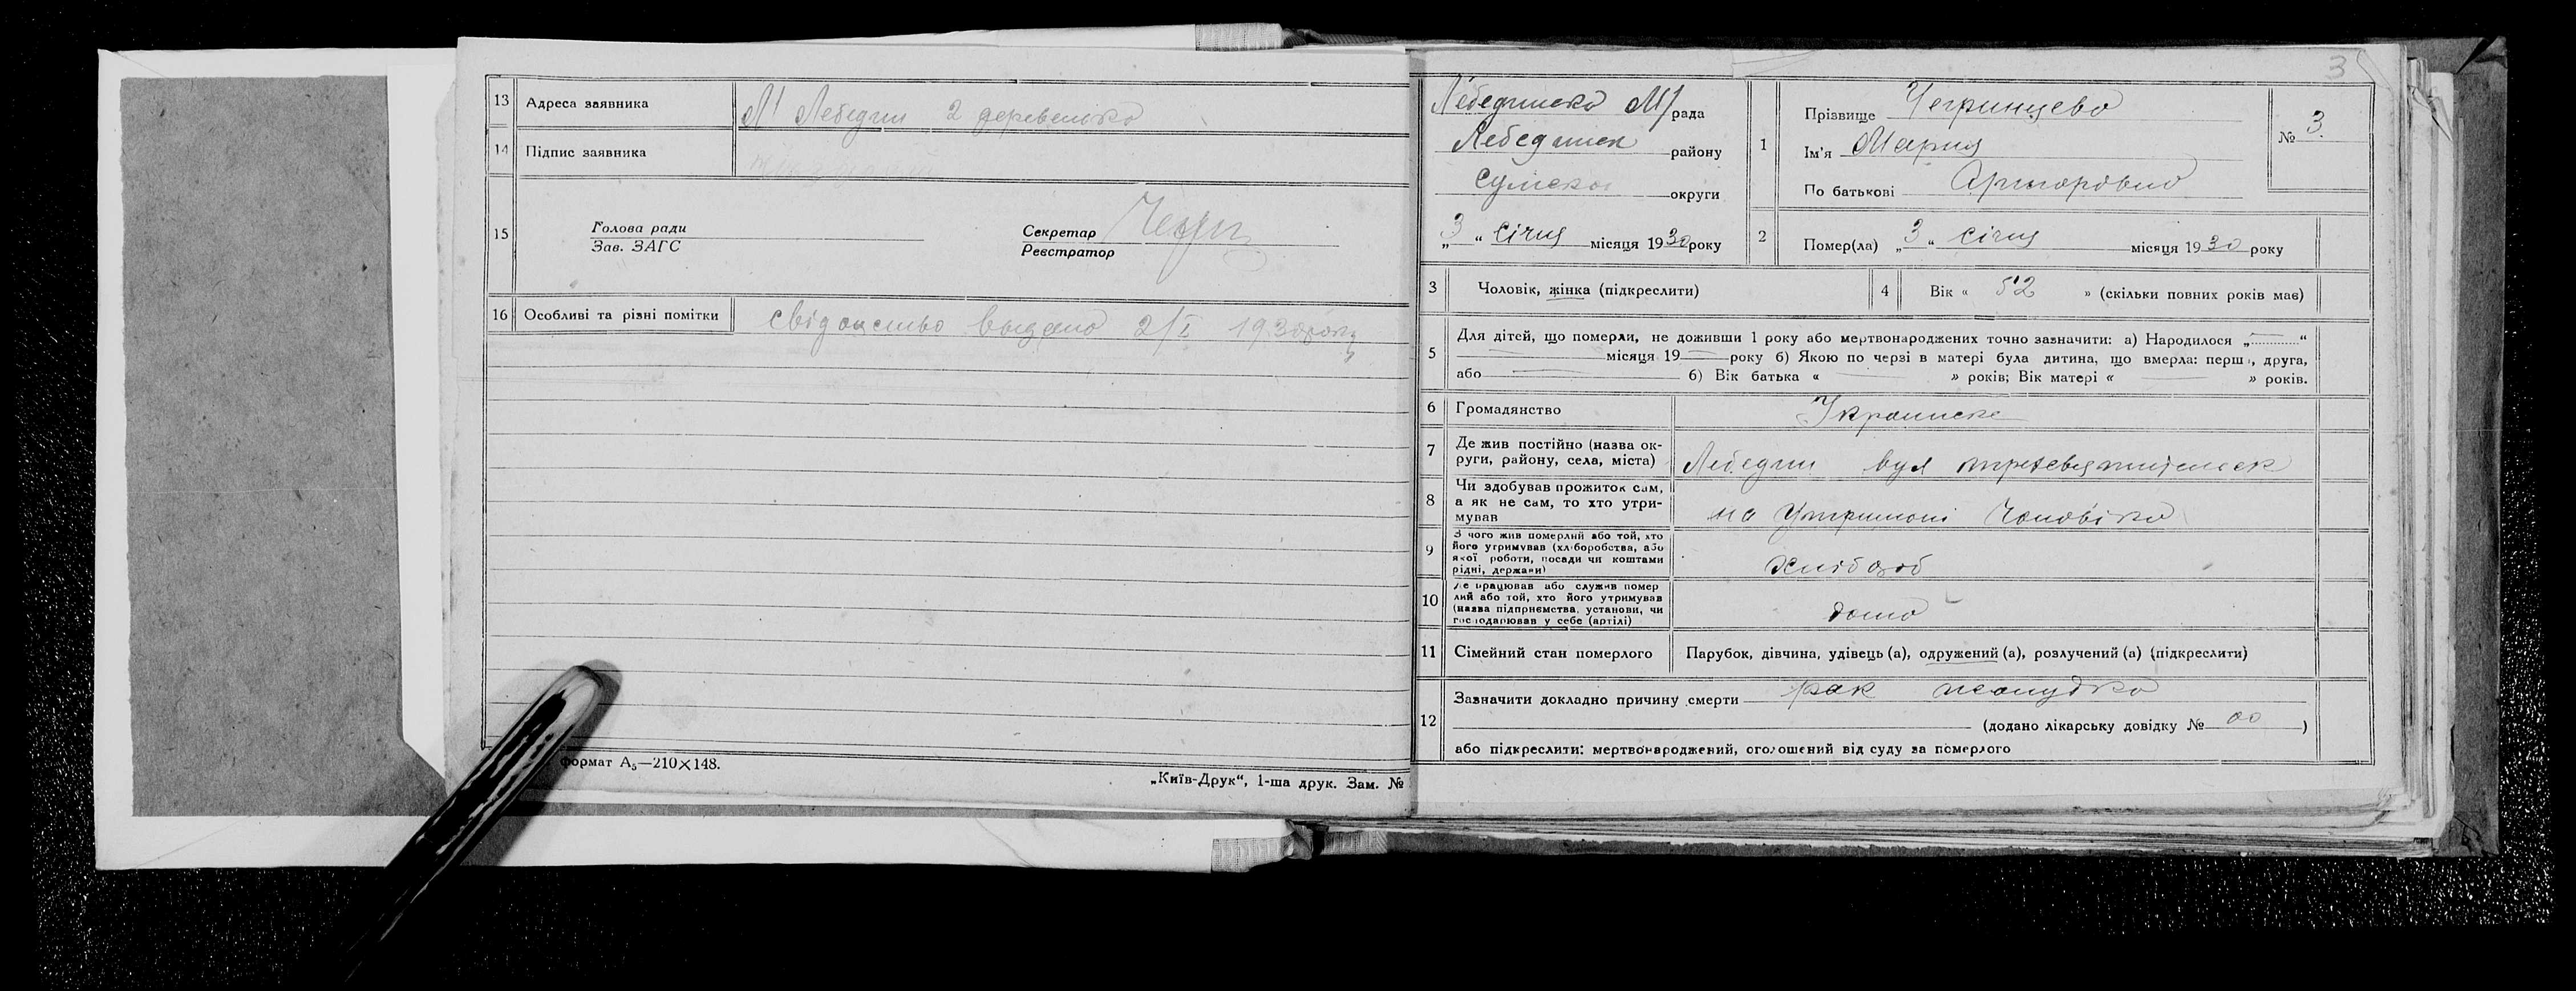 13 Адреса заявника М/ Лебедин 2 деревенька
14 Підпис заявника
15 Голова ради
Зав. ЗАГС
Секретар
Реєстратор
16 Особливі та різні помітки свідоцство выдано 2/I 1930 року
формат А₅—210×148.
„Київ-Друк“, 1-ша друк. Зам. №
3
Лебединска М/ рада
Лебединск району
Сумска округи
„3“ Січня місяця 1930 року
1 Прізвище
Ім'я Мария
По батькові
№ 3.
2 Помер(ла) „3“ Січня місяця 1930 року
3 Чоловік, жінка (підкреслити)
4 Вік « 52 » (скільки повних років має)
5 Для дітей, що померли, не доживши 1 року або мертвонароджених точно зазначити: а) Народилося „ “
місяця 19 року б) Якою по черзі в матері була дитина, що вмерла: перша, друга,
або б) Вік батька « » років; Вік матері « » років.
6 Громадянство Украинске
7 Де жив постійно (назва ок-
руги, району, села, міста) Лебедин вул трехсвятительск
8 Чи здобував прожиток сам,
а як не сам, то хто утри-
мував на Утримані Чоловіка
9 З чого жив померлий або той, хто
його утримував (хліборобства, або
якої роботи, посади чи коштами
рідні, держави) Хлібороб
10 Де працював або служив помер
лий або той, хто його утримував
(назва підприємства, установи, чи
господарював у себе (артілі) дома
11 Сімейний стан померлого Парубок, дівчина, удівець (а), одружений (а), розлучений (а) (підкреслити)
12 Зазначити докладно причину смерти рак желудка
(додано лікарську довідку № 00 )
або підкреслити: мертвонароджений, оголошений від суду за померлого